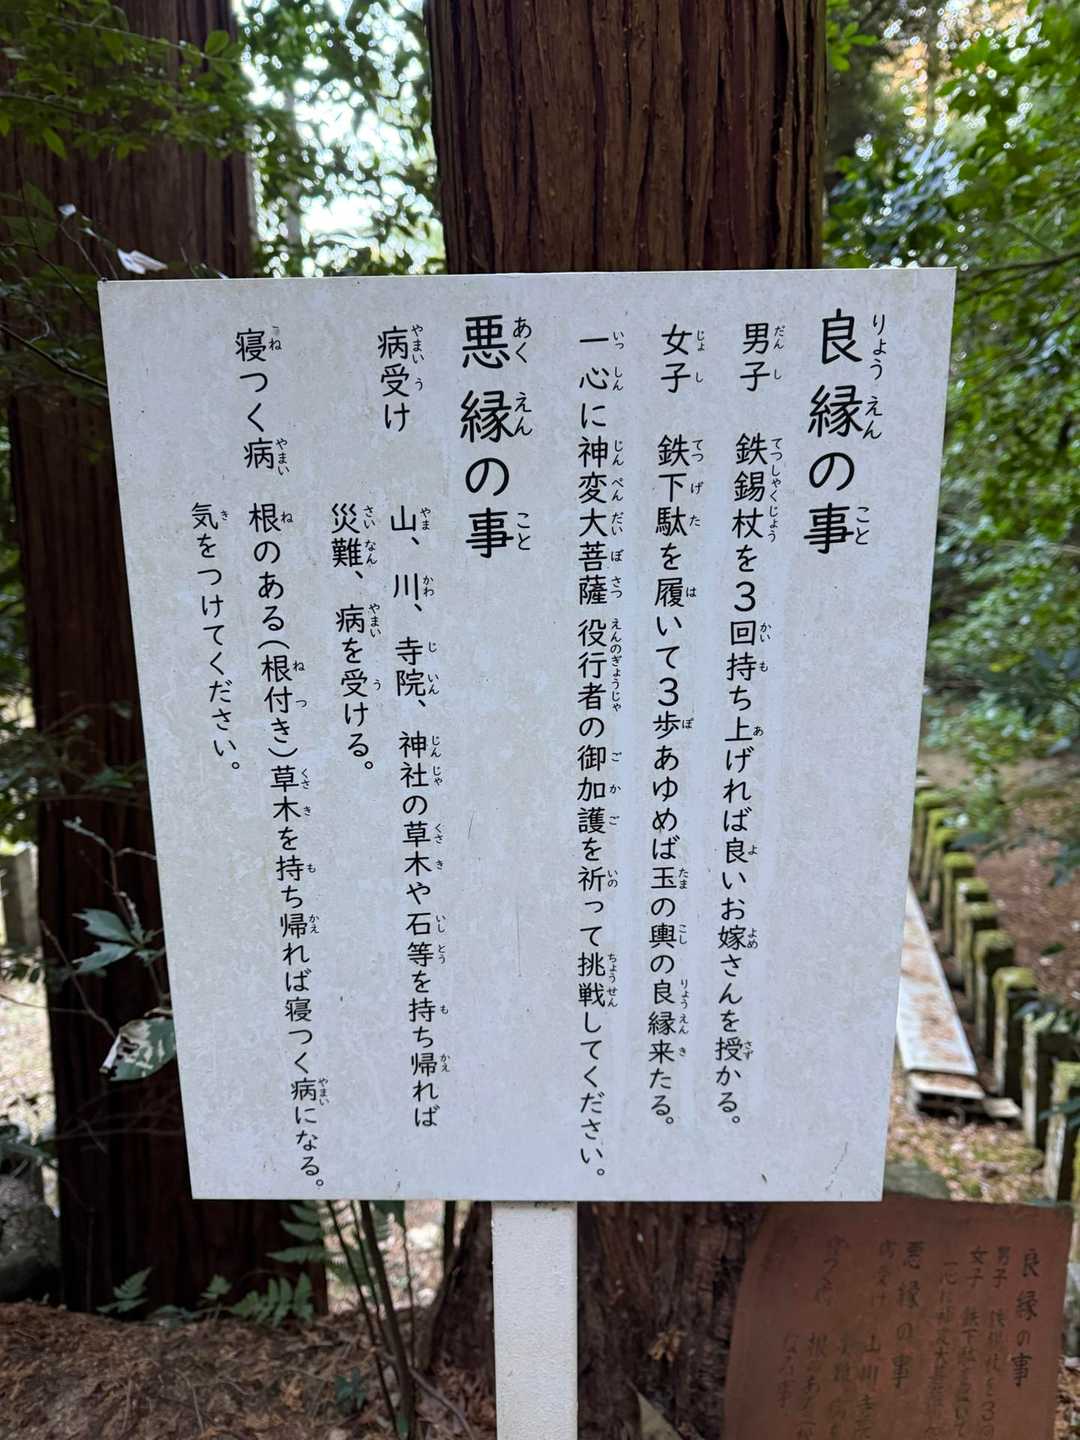 良縁の事
男子 鉄錫杖を3回持ち上げれば良いお嫁さんを授かる。
女子 鉄下駄を履いて3歩あゆめば玉の輿の良縁来たる。
一心に神変大菩薩 役行者の御加護を祈って挑戦してください。
悪縁の事
病受け 山、川、寺院、神社の草木や石等を持ち帰れば
災難、病を受ける。
寝つく病 根のある(根付き)草木を持ち帰れば寝つく病になる。
気をつけてください。
良縁の事
男子
女子 鉄下駄を
悪縁の事
山川